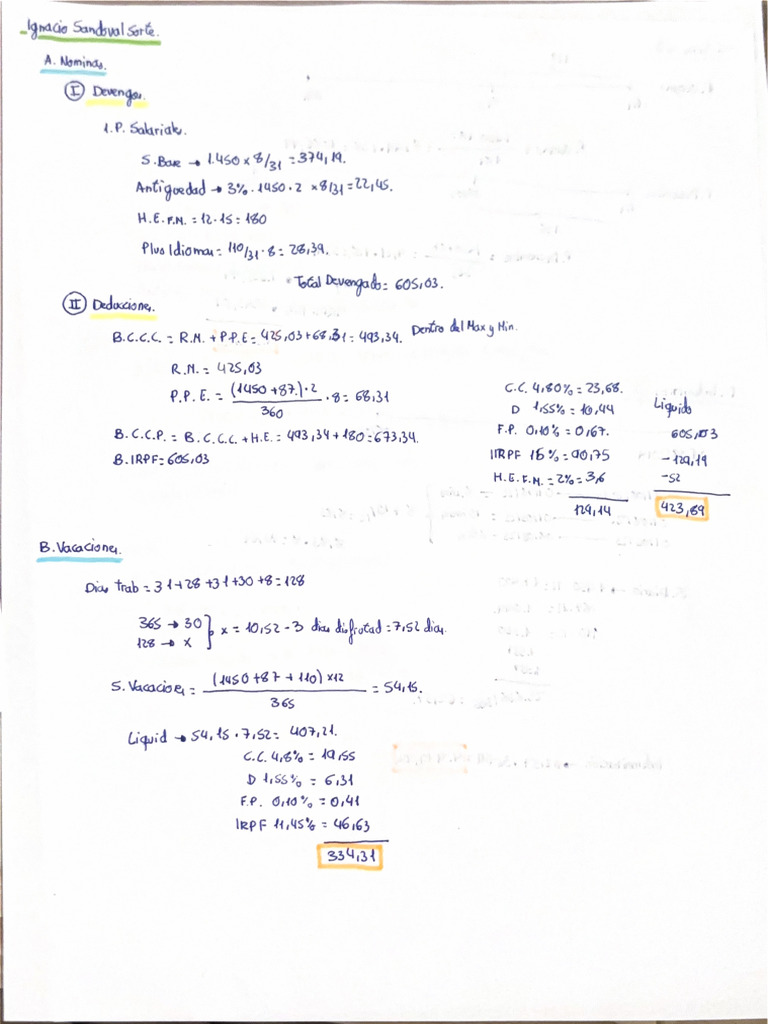 Ignacio Sandoval Sorte.
A. Nominas.
I Devengos.
1. P. Salariales.
S. Base → 1.450 x 8/31 = 374,19.
Antiguedad → 3% · 1450 · 2 x 8/31 = 22,45.
H.E.F.M. = 12 · 15 = 180
Plus Idiomas = 110/31 · 8 = 28,39.
Total Devengado = 605,03.
II Deducciones.
B.C.C.C. = R.M. + P.P.E = 425,03 + 68,31 = 493,34. Dentro del Max y Min.
R.M. = 425,03
P.P.E. = (1450 + 87) · 2 / 360 · 8 = 68,31
B.C.C.P. = B.C.C.C. + H.E. = 493,34 + 180 = 673,34.
B.IRPF = 605,03
C.C. 4,80% = 23,68.
D 1,55% = 10,44
F.P. 0,10% = 0,67.
IRPF 15% = 90,75
H.E.F.M. = 2% = 3,6
129,14
Liquido
605,03
- 129,19
- 52
423,89
B. Vacaciones.
Dias trab = 31 + 28 + 31 + 30 + 8 = 128
365 → 30
128 → x } x = 10,52 - 3 dias disfrutad = 7,52 dias.
S. Vacaciones = (1450 + 87 + 110) x 12 / 365 = 54,15.
Liquid → 54,15 · 7,52 = 407,21.
C.C. 4,8% = 19,55
D 1,55% = 6,31
F.P. 0,10% = 0,41
IRPF 11,45% = 46,63
334,31